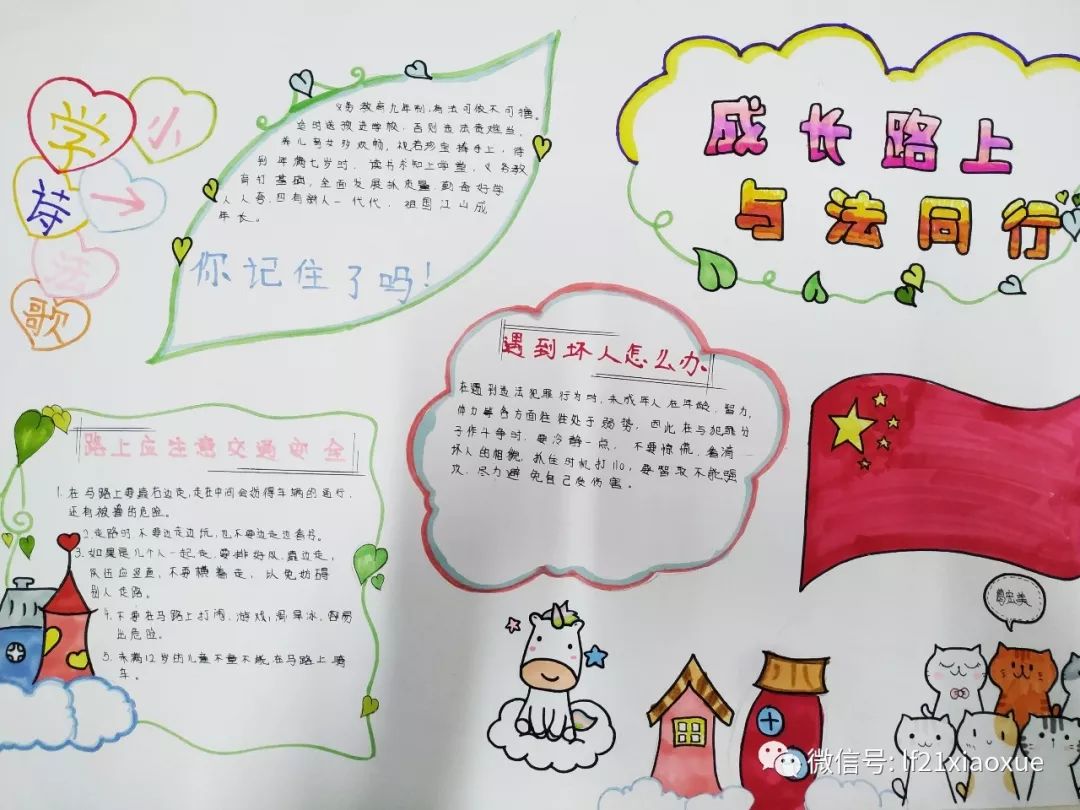 成长路上
与法同行
小
学
一
诗
法
歌
义务教育九年制,有法可依不可推。
适时送孩进学校,否则违法责难当。
养儿育女多欢畅,视若珍宝捧手上,待
到年满七岁时,读书求知上学堂,义务教
育打基础,全面发展抓质量,勤奋好学
人人夸,四有新人一代代,祖国江山成
年长。
你记住了吗!
遇到坏人怎么办
在遇到违法犯罪行为时,未成年人在年龄,智力,
体力等各方面往往处于弱势,因此在与犯罪分
子作斗争时,要冷静一点,不要惊慌,看清
坏人的相貌,抓住时机打110,要智取不能强
攻,尽力避免自己受伤害。
路上应注意交通安全
1.在马路上要靠右边走,走在中间会妨碍车辆的通行,
还有被撞的危险。
2.走路时不要边走边玩,也不要边走边看书。
3.如果是几个人一起走,要排好队,靠边走,
队伍应竖直,不要横着走,以免妨碍
别人走路。
4.不要在马路上打闹、游戏,滑旱冰,容易
出危险。
5.未满12岁的儿童不要不能在马路上骑
车。
微信号: lf21xiaoxue